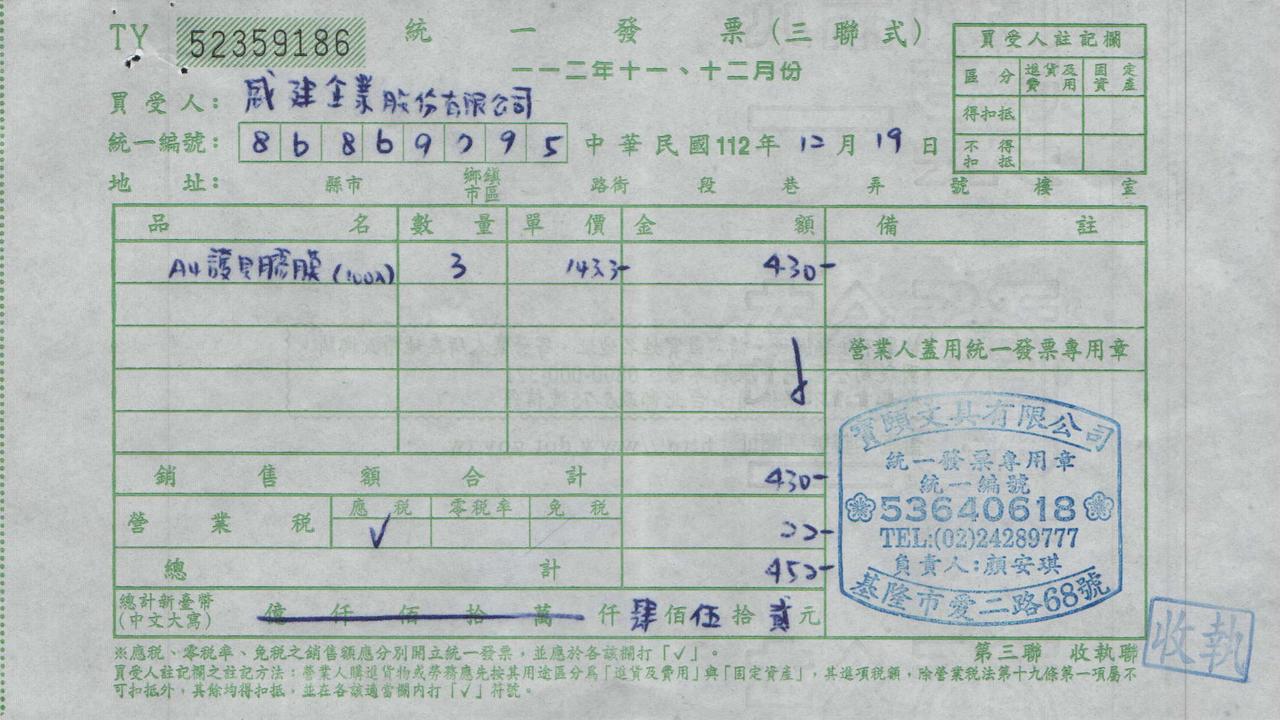 TY 52359186 統一發票(三聯式)
一一二年十一、十二月份
買受人註記欄
區分 進貨及費用 固定資產
得扣抵
不得扣抵
買受人: 威建企業股份有限公司
統一編號: 86869795 中華民國112年12月19日
地址: 縣市 鄉鎮市區 路街 段 巷 弄 號 樓 室
品名 數量 單價 金額 備註
A4護貝膠膜(100入) 3 143.3 430-
營業人蓋用統一發票專用章
銷售額合計 430-
營業稅 應稅 零稅率 免稅
✓ 22-
總計 452-
總計新臺幣(中文大寫) 億仟佰拾萬仟肆佰伍拾貳元
寶頤文具有限公司
統一發票專用章
統一編號
53640618
TEL:(02)24289777
負責人:顏安琪
基隆市愛二路68號
※應稅、零稅率、免稅之銷售額應分別開立統一發票,並應於各該欄打「✓」。
第三聯 收執聯
收執
買受人註記欄之註記方法:營業人購進貨物或勞務應先按其用途區分為「進貨及費用」與「固定資產」,其進項稅額,除營業稅法第十九條第一項屬不
可扣抵外,其餘均得扣抵,並在各該適當欄內打「✓」符號。